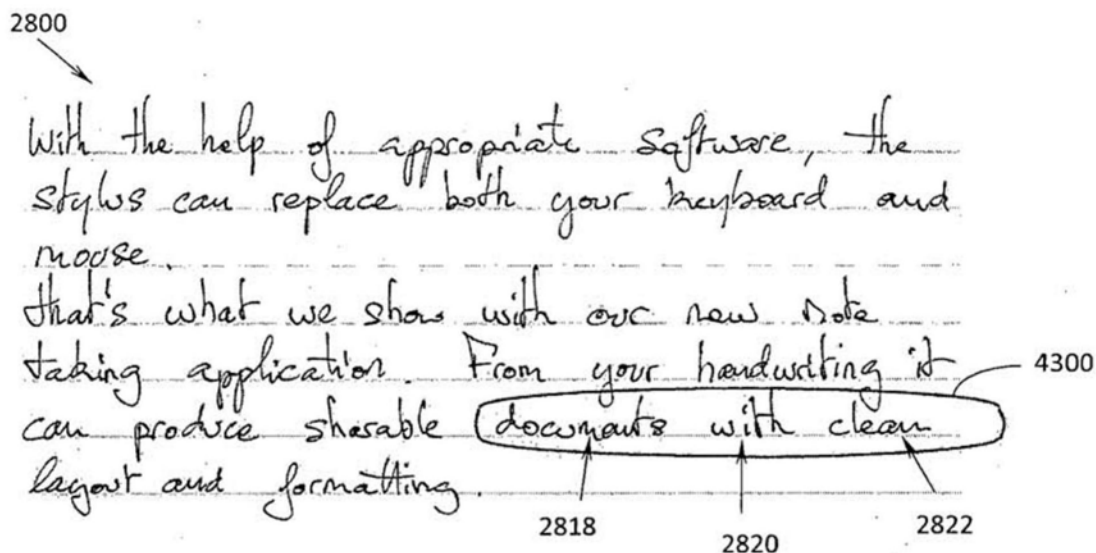 2800
With the help of appropriate software, the
stylus can replace both your keyboard and
mouse.
that's what we show with our new note
taking application. From your handwriting it
4300
can produce sharable documents with clean
layout and formatting.
2818
2820
2822